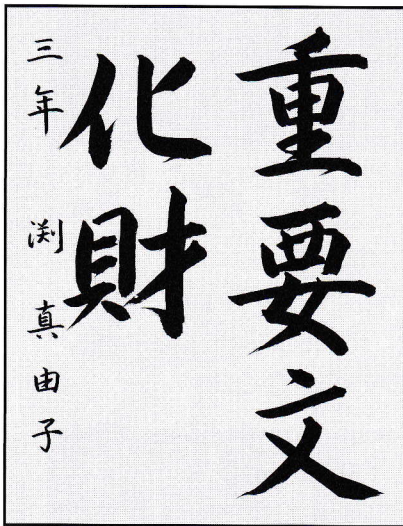 重要文
化財
三年 渕真由子